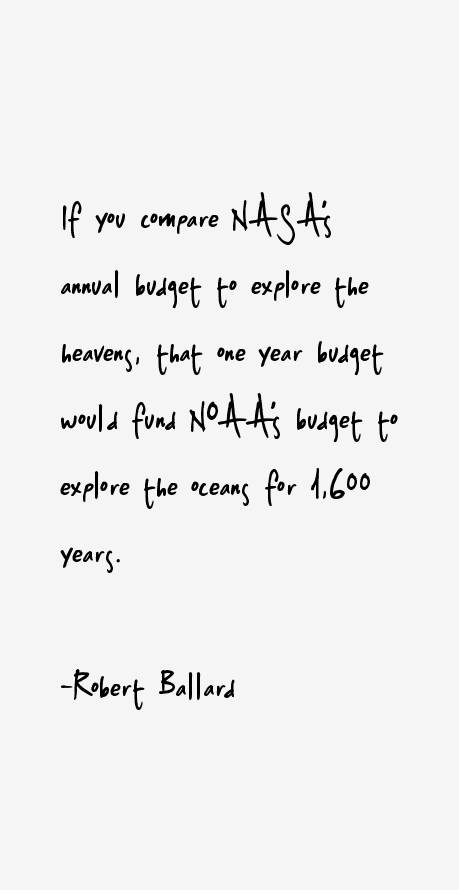 If you compare NASA's
annual budget to explore the
heavens, that one year budget
would fund NOAA's budget to
explore the oceans for 1,600
years.
-Robert Ballard